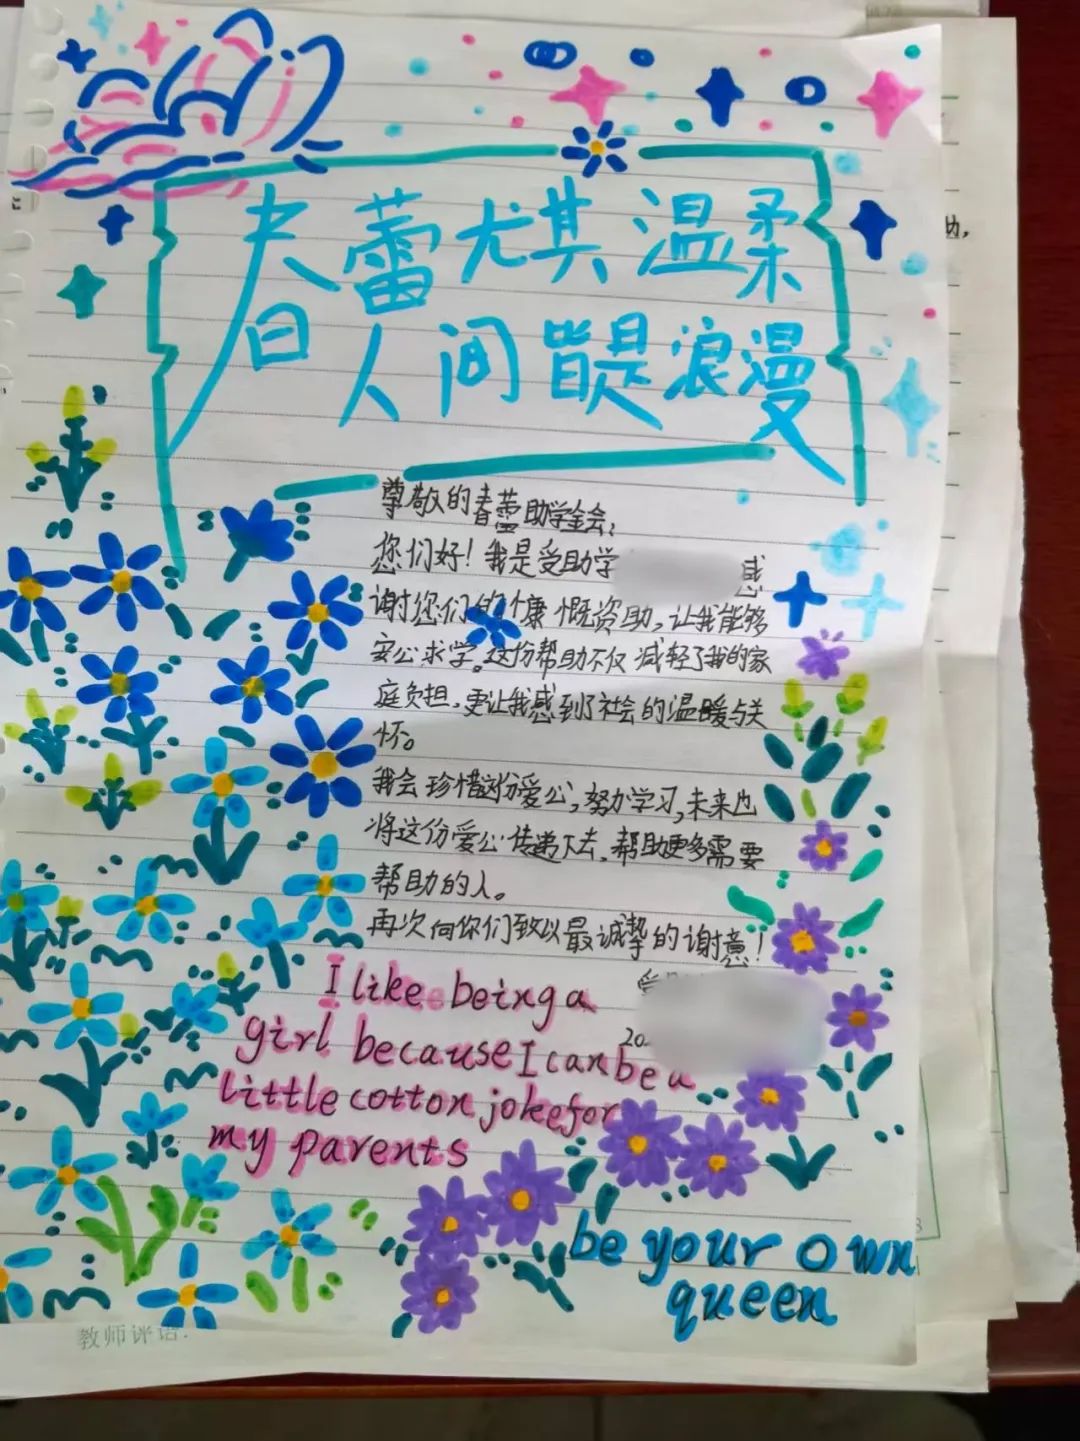 春蕾尤其温柔
人间皆是浪漫
尊敬的春蕾助学金会：
您们好！我是受助学
谢您们的慷慨资助，让我能够
安心求学。这份帮助不仅减轻了我的家
庭负担，更让我感到了社会的温暖与关
怀。
我会珍惜这份爱心，努力学习，未来也
将这份爱心传递下去，帮助更多需要
帮助的人。
再次向你们致以最诚挚的谢意！
20
I like being a
girl because I can be a
little cotton joke for
my parents
be your own
queen
教师评语：